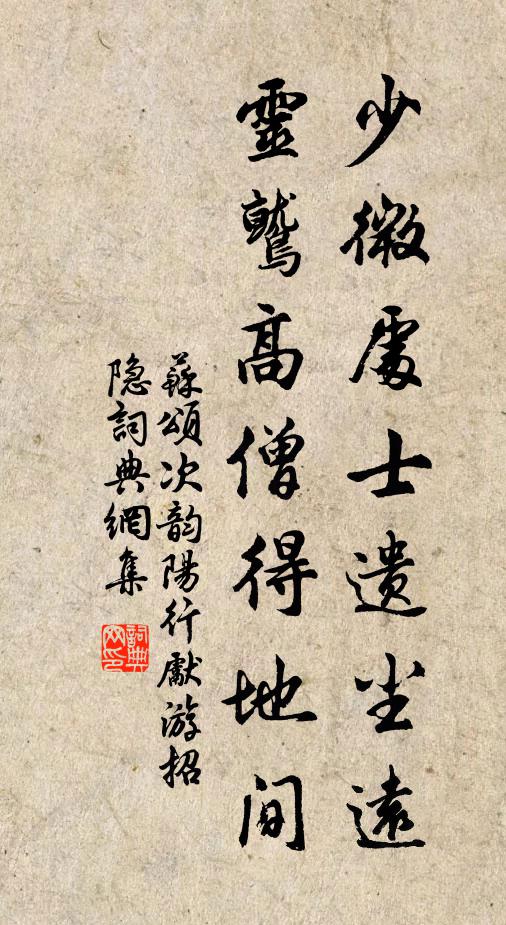 少微處士遗尘遠
靈鷲高僧得地间
蘇頌次韵陽行獻游招
隐詞典網集
詞典网印